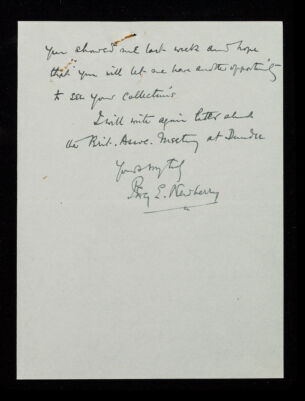 you showed me last week and hope
that you will let me have another opportunity
to see your collections
I will write again later about
the Brit. Assoc. Meeting at Dundee
Yours truly
Percy E. Newberry